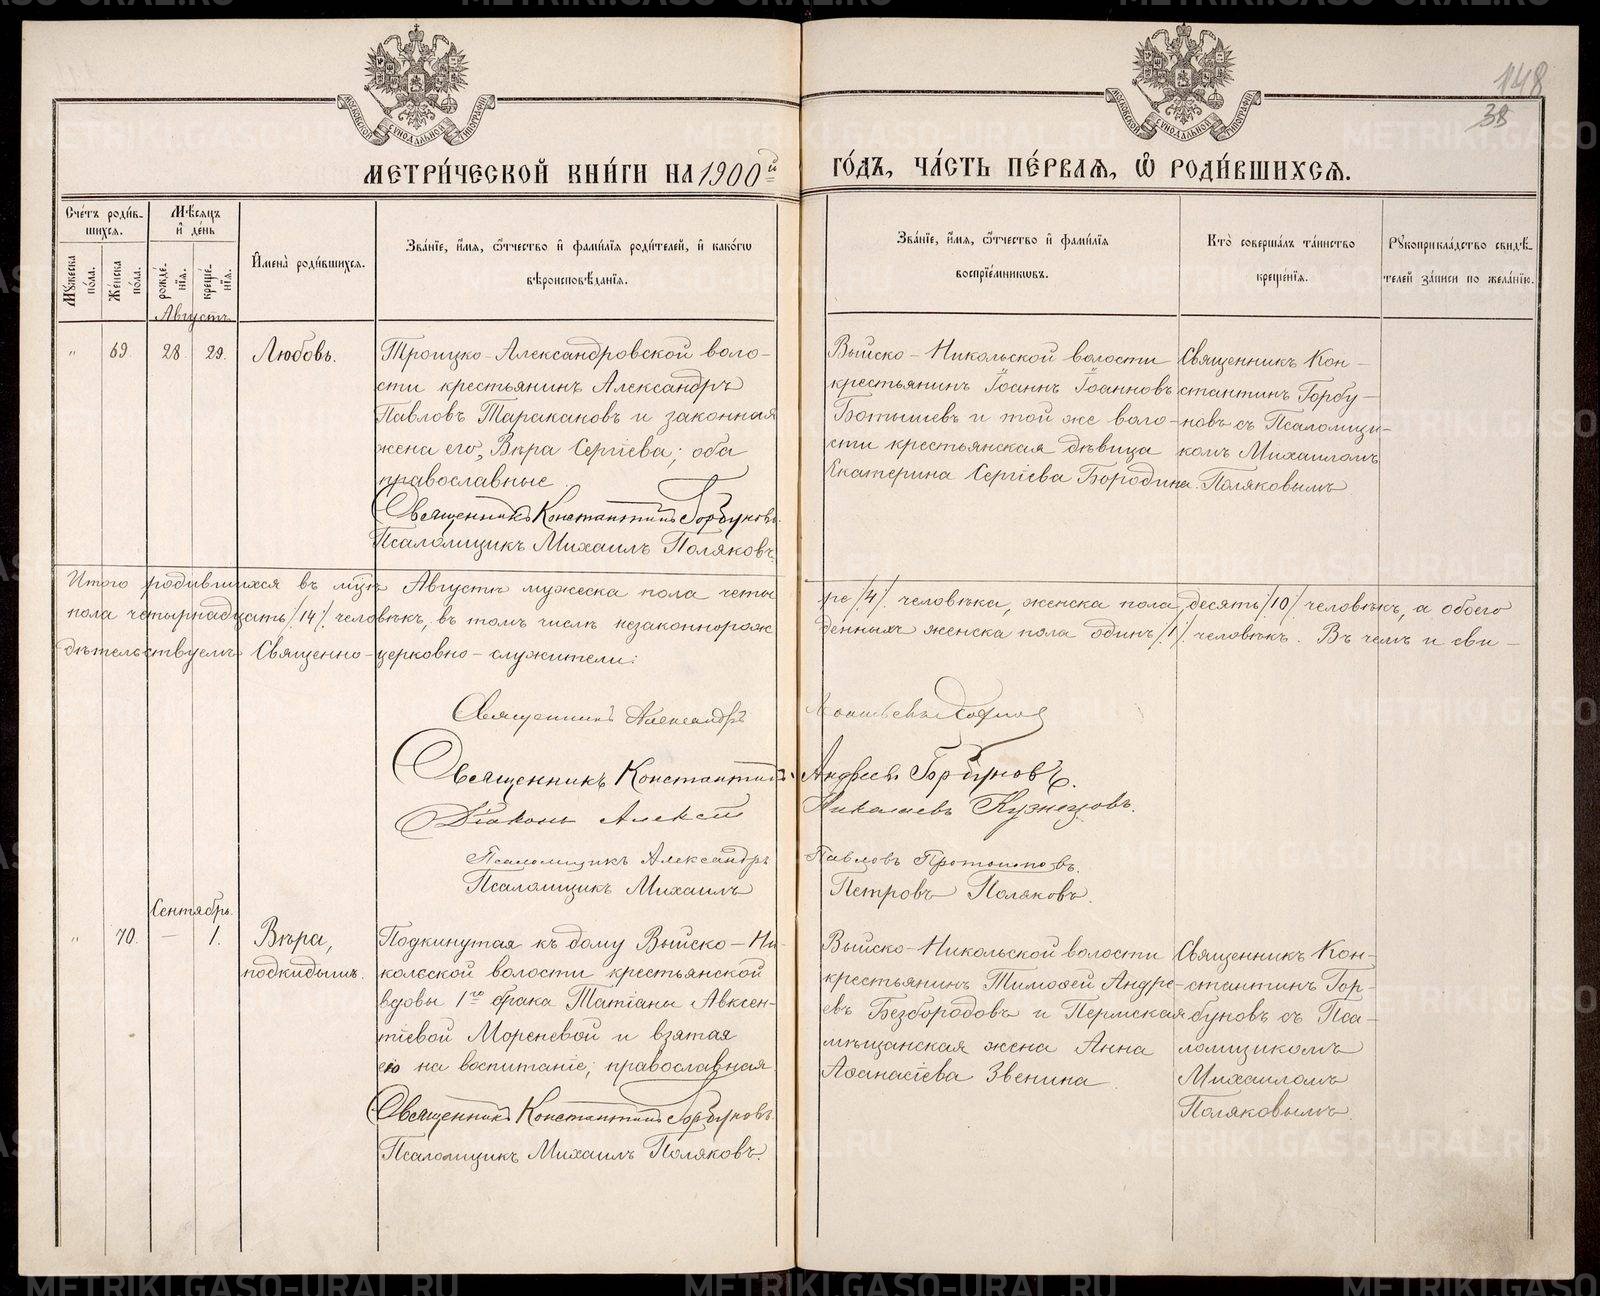 148
38
МОСКОВСКОЙ СѴНОДАЛЬНОЙ ТИПОГРАФІИ
МОСКОВСКОЙ СѴНОДАЛЬНОЙ ТИПОГРАФІИ
МЕТРИ́ЧЕСКОЙ КНИ́ГИ НА 1900й ГО́ДЪ, ЧА́СТЬ ПЕ́РВАѦ, Ѽ РОДИ́ВШИХСѦ.
Сче́тъ роди́в-
шихсѧ.
Мꙋжеска по́ла.
Же́нска по́ла.
Мѣ́сѧцъ
и҆ де́нь
рожде́-
нїѧ.
креще́-
нїѧ.
И҆мена̀ роди́вшихсѧ.
Зва́нїе, и҆́мѧ, ѻ҆́тчество и҆ фами́лїѧ роди́телей, и҆ како́гѡ
вѣроисповѣ́данїѧ.
Зва́нїе, и҆́мѧ, ѻ҆́тчество и҆ фами́лїѧ
воспрїе́мникѡвъ.
Кто̀ соверша́лъ та́инство
креще́нїѧ.
Рꙋкоприкла́дство свидѣ́-
телей за́писи по жела́нїю.
Августъ
" 69. 28. 29. Любовь.
Троицко-Александровской воло-
сти крестьянинъ Александръ
Павловъ Таракановъ и законная
жена его, Вѣра Сергіева; оба
православные.
Священникъ Константинъ Горбуновъ.
Псаломщикъ Михаилъ Поляковъ.
Выйско-Никольской волости
крестьянинъ Іоаннъ Іоанновъ
Ботышевъ и той же воло-
сти крестьянская дѣвица
Екатерина Сергіева Бородина.
Священникъ Кон-
стантинъ Горбу-
новъ съ Псаломщи-
комъ Михаиломъ
Поляковымъ.
Итого родившихся въ мцѣ Августѣ мужеска пола четы ре /4/ человѣка, женска пола десять /10/ человѣкъ, а обоего
пола четырнадцать /14/ человѣкъ, въ томъ числѣ незаконнорож денныхъ женска пола одинъ /1/ человѣкъ. Въ чемъ и сви-
дѣтельствуемъ Священно-церковно-служители:
Священникъ Александръ
Священникъ Константинъ Андреевъ Горбуновъ.
Діаконъ Алексій Николаевъ Кузнецовъ.
Псаломщикъ Александръ Павловъ Протопоповъ.
Псаломщикъ Михаилъ Петровъ Поляковъ.
Сентябрь.
" 70. — 1. Вѣра,
подкидышъ.
Подкинутая къ дому Выйско-Ни-
колеской волости крестьянской
вдовы 1го брака Татіаны Авксен-
тіевой Мореневой и взятая
ею на воспитаніе; православная
Священникъ Константинъ Горбуновъ.
Псаломщикъ Михаилъ Поляковъ.
Выйско-Никольской волости
крестьянинъ Тимоѳей Андре-
евъ Безбородовъ и Пермская
мѣщанская жена Анна
Аѳанасіева Звенина.
Священникъ Кон-
стантинъ Гор-
буновъ съ Пса-
ломщикомъ
Михаиломъ
Поляковымъ.
METRIKI.GASO-URAL.RU